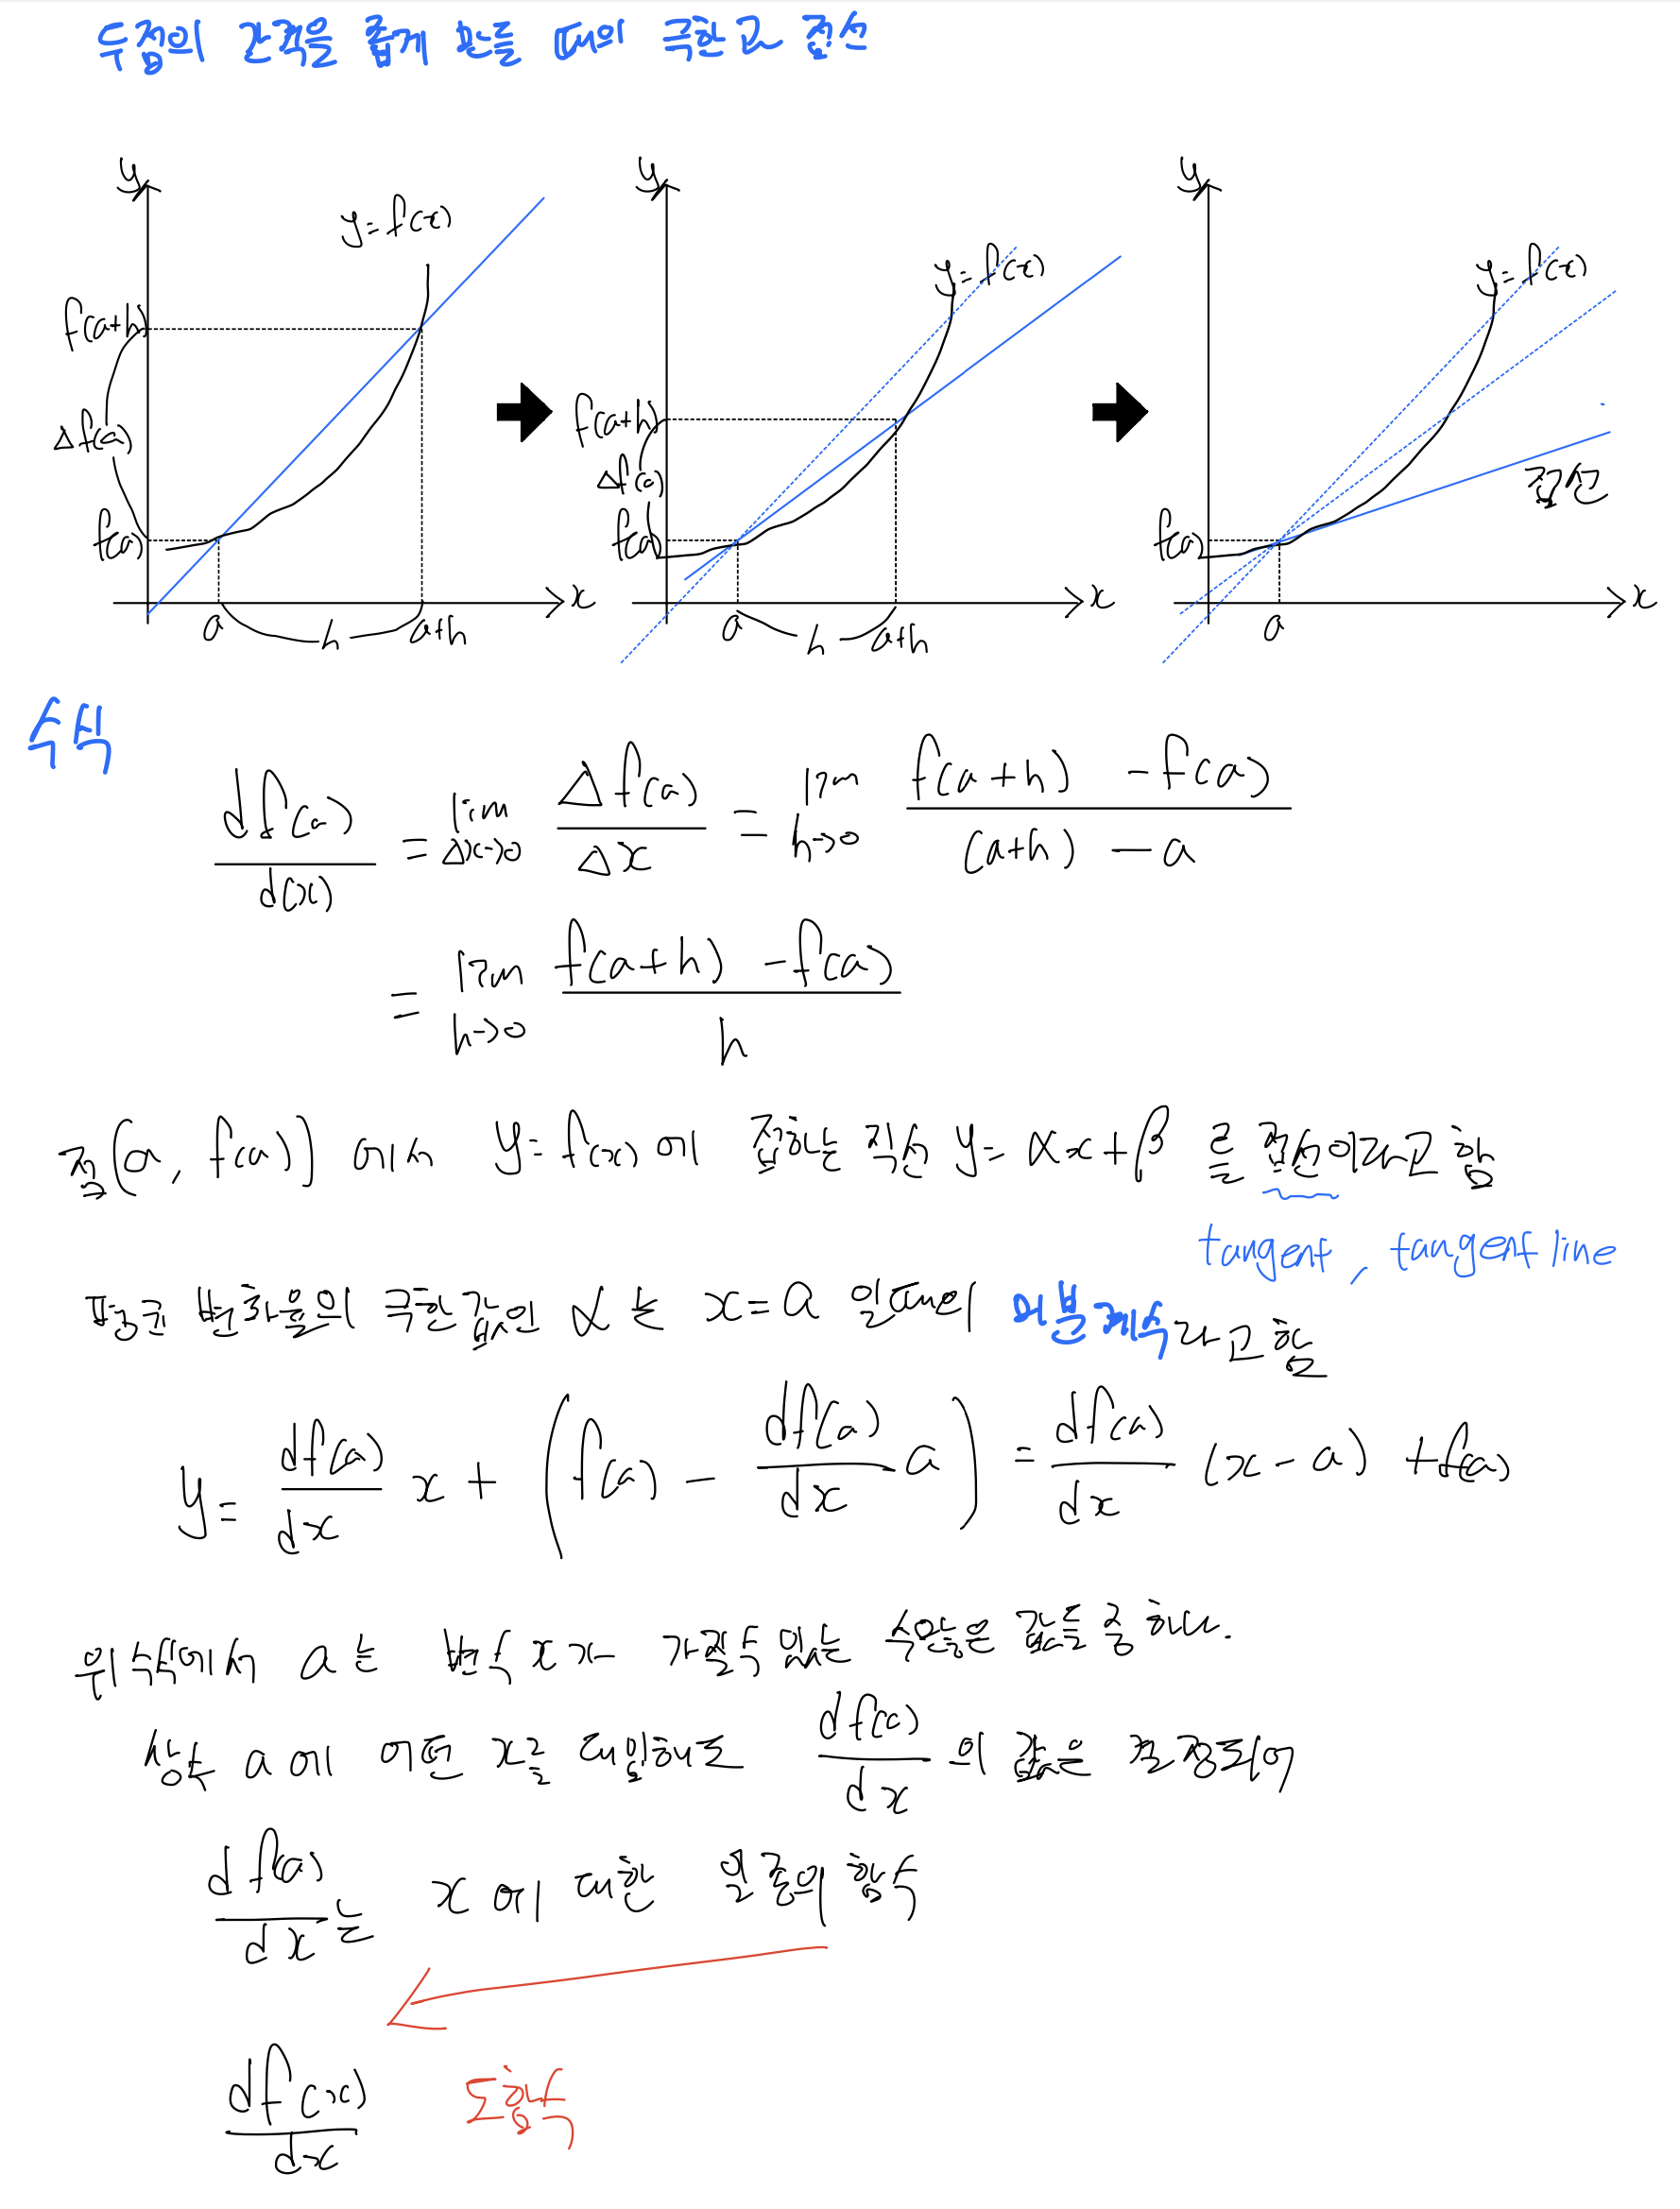 두점의 간격을 좁게 만들 때의 극한과 접선
y y y
y=f(x) y=f(x) y=f(x)
f(a+h) f(a+h)
Δf(a) Δf(a) 접선
f(a) f(a) f(a)
x x x
a h a+h a h a+h a
수식
df(a)/d(x) = lim Δx→0 Δf(a)/Δx = lim h→0 f(a+h) - f(a)/(a+h) - a
= lim h→0 f(a+h) - f(a)/h
점(a, f(a)) 에서 y=f(x) 에 접하는 직선 y= αx+β 를 접선이라고 함
tangent, tangent line
평균 변화율의 극한값인 α는 x=a 일때의 미분계수라고 함
y= df(a)/dx x + (f(a) - df(a)/dx a) = df(a)/dx (x-a) + f(a)
위 수식에서 a는 변수 x가 가질수 있는 수많은 값들 중 하나.
상수 a에 어떤 x를 대입해도 df(a)/dx 의 값은 결정되어
df(a)/dx는 x에 대한 일종의 함수
df(x)/dx 도함수